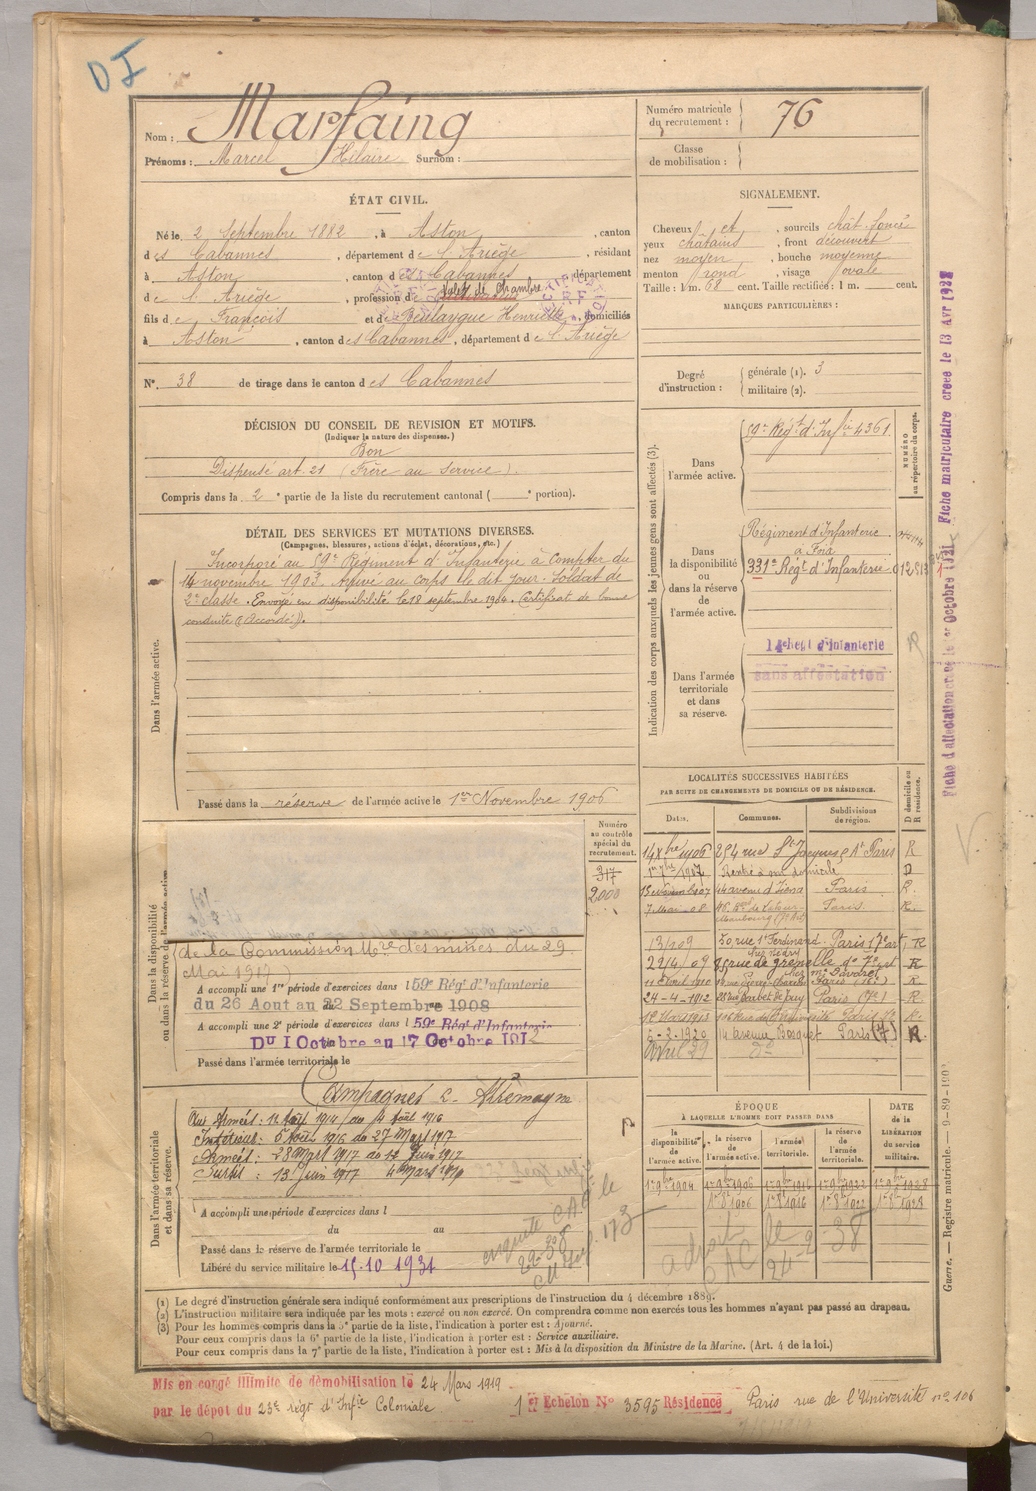 DI
Nom : Marfaing
Prénoms : Marcel Hilaire Surnom :
Numéro matricule du recrutement : 76
Classe de mobilisation :
ÉTAT CIVIL.
Né le 2 Septembre 1882, à Aston, canton
des Cabannes, département de l'Ariège, résidant
à Aston, canton des Cabannes, département
de l'Ariège, profession de Valet de chambre
fils de François et de Boulaygue Henriette, domiciliés
à Aston, canton des Cabannes, département de l'Ariège
N° 38 de tirage dans le canton des Cabannes
SIGNALEMENT.
Cheveux et, sourcils chât. foncé
yeux châtains, front découvert
nez moyen, bouche moyenne
menton rond, visage ovale
Taille : 1 m. 68 cent. Taille rectifiée : 1 m. cent.
MARQUES PARTICULIÈRES :
Degré d'instruction :
générale (1). 3
militaire (2).
DÉCISION DU CONSEIL DE REVISION ET MOTIFS.
(Indiquer la nature des dispenses.)
Bon
Dispensé art. 21 (Frère au service).
Compris dans la 2e partie de la liste du recrutement cantonal ( e portion).
DÉTAIL DES SERVICES ET MUTATIONS DIVERSES.
(Campagnes, blessures, actions d'éclat, décorations, etc.)
Dans l'armée active.
Incorporé au 59e Régiment d'Infanterie à compter du
14 novembre 1903. Arrivé au corps le dit jour. Soldat de
2e classe. Envoyé en disponibilité le 18 septembre 1904. Certificat de bonne
conduite "Accordé".
Passé dans la réserve de l'armée active le 1er Novembre 1906
Indication des corps auxquels les jeunes gens sont affectés (3).
NUMÉRO au répertoire du corps.
Dans l'armée active.
59e Régt d'Infie 4361
Dans la disponibilité ou dans la réserve de l'armée active.
Régiment d'Infanterie
à Foix
331e Régt d'Infanterie
Dans l'armée territoriale et dans sa réserve.
d'infanterie
sans affectation
Fiche matriculaire créée le 13 Avr
Fiche d'affectation
LOCALITÉS SUCCESSIVES HABITÉES
PAR SUITE DE CHANGEMENTS DE DOMICILE OU DE RÉSIDENCE.
Dates. Communes. Subdivisions de région. D domicile ou R résidence.
14 Xbre 1906 254 rue St Jacques Paris R
1907 Rentré à son domicile D
44 avenue d'Iéna Paris R.
7 Mai 08 Paris. R.
13/1/09 50 rue St Ferdinand Paris 17e art R
22/4/09 rue de grenelle R
24-4-1912 28 rue Barbet de Jouy Paris (7e) R.
6-2-1920 14 avenue Bosquet Paris (7) R.
Avril 29 do
Numéro au contrôle spécial du recrutement.
317
2.000
Dans la disponibilité ou dans la réserve de l'armée active
de la Commission Mce des mines du 29
Mai 1917)
A accompli une 1re période d'exercices dans le 59e Rég. d'Infanterie
du 26 Aout au 22 Septembre 1908
A accompli une 2e période d'exercices dans le 59e Régt d'Infanterie
Du 1 Octobre au 17 Octobre 1912
Passé dans l'armée territoriale le
Dans l'armée territoriale et dans sa réserve.
Campagnes c. Allemagne
Aux Armées : 12 Août 1914 au 4 Août 1916
Intérieur : 5 Août 1916 au 27 Mars 1917
Armées : 28 Mars 1917 au 12 Juin 1917
Sursis : 13 Juin 1917 4 Mars 1919
A accompli une période d'exercices dans l
du au
Passé dans la réserve de l'armée territoriale le
Libéré du service militaire le 15.10 1931
enquête CAC le
173
ÉPOQUE
À LAQUELLE L'HOMME DOIT PASSER DANS
DATE de la LIBÉRATION du service militaire.
la disponibilité de l'armée active.
la réserve de l'armée active.
l'armée territoriale.
la réserve de l'armée territoriale.
1er 9bre 1904 1er 9bre 1906 1er 9bre 1916 1er 9bre 1922 1er 9bre 1928
1er 8bre 1906 1er 8bre 1916 1er 8bre 1922 1er 8bre 1928
a droit le 38
CAC 24-2
(1) Le degré d'instruction générale sera indiqué conformément aux prescriptions de l'instruction du 4 décembre 1889.
(2) L'instruction militaire sera indiquée par les mots : exercé ou non exercé. On comprendra comme non exercés tous les hommes n'ayant pas passé au drapeau.
(3) Pour les hommes compris dans la 5e partie de la liste, l'indication à porter est : Ajourné.
Pour ceux compris dans la 6e partie de la liste, l'indication à porter est : Service auxiliaire.
Pour ceux compris dans la 7e partie de la liste, l'indication à porter est : Mis à la disposition du Ministre de la Marine. (Art. 4 de la loi.)
Guerre. — Registre matricule. — 9-89-1903
Mis en congé illimité de démobilisation le 24 Mars 1919
par le dépôt du 23e régt d'Infie Coloniale
1er Echelon N° 3595 Résidence Paris rue de l'Université no 106